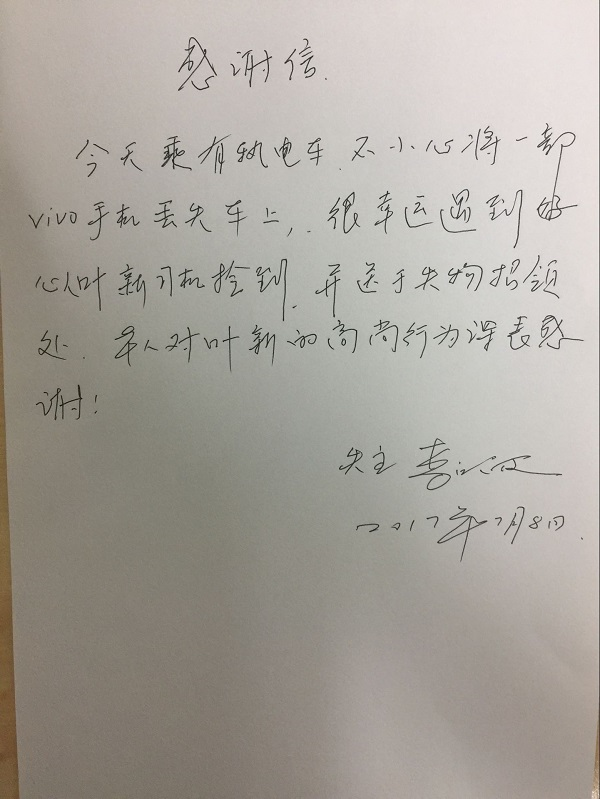 感谢信.
今天乘有轨电车.不小心将一部
vivo手机丢失车上,.很幸运遇到好
心人叶新司机捡到.并送于失物招领
处.本人对叶新的高尚行为深表感
谢!
失主
2017年7月8日.